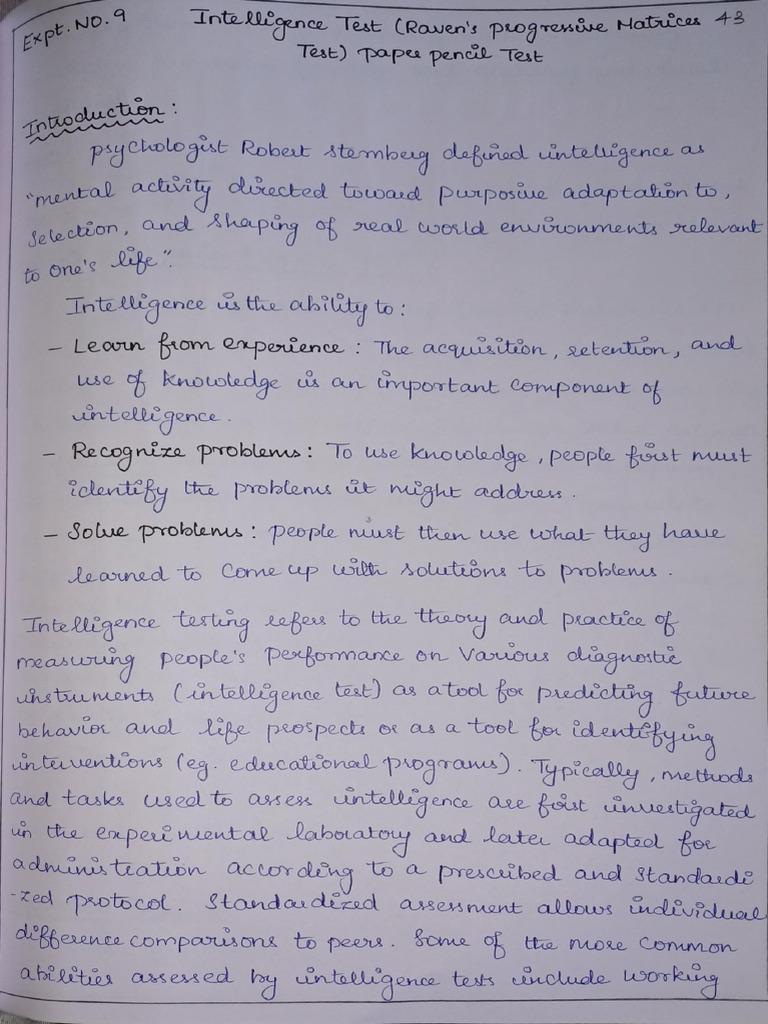 Expt. NO. 9
Intelligence Test (Raven's progressive Matrices 43
Test) paper pencil Test
Introduction:
psychologist Robert sternberg defined intelligence as
"mental activity directed toward purposive adaptation to,
selection, and shaping of real world environments relevant
to one's life".
Intelligence is the ability to:
- Learn from experience: The acquisition, retention, and
use of knowledge is an important component of
intelligence.
- Recognize problems: To use knowledge, people first must
identify the problems it might address.
- Solve problems: people must then use what they have
learned to come up with solutions to problems.
Intelligence testing refers to the theory and practice of
measuring people's performance on various diagnostic
instruments (intelligence test) as a tool for predicting future
behavior and life prospects or as a tool for identifying
interventions (eg. educational programs). Typically, methods
and tasks used to assess intelligence are first investigated
in the experimental laboratory and later adapted for
administration according to a prescribed and standardi
-zed protocol. Standardized assessment allows individual
difference comparisons to peers. Some of the more common
abilities assessed by intelligence tests include working